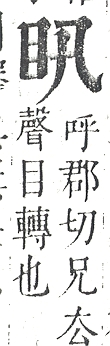 呼郡切兄厺
聲目轉也